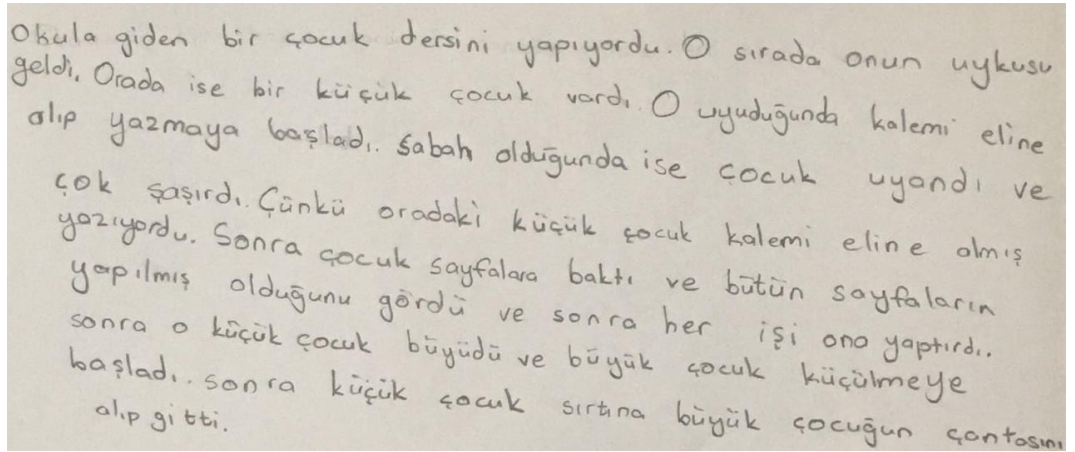 Okula giden bir çocuk dersini yapıyordu. O sırada onun uykusu
geldi. Orada ise bir küçük çocuk vardı. O uyuduğunda kalemi eline
alıp yazmaya başladı. Sabah olduğunda ise çocuk uyandı ve
çok şaşırdı. Çünkü oradaki küçük çocuk kalemi eline almış
yazıyordu. Sonra çocuk sayfalara baktı ve bütün sayfaların
yapılmış olduğunu gördü ve sonra her işi ona yaptırdı.
sonra o küçük çocuk büyüdü ve büyük çocuk küçülmeye
başladı. sonra küçük çocuk sırtına büyük çocuğun çantasını
alıp gitti.